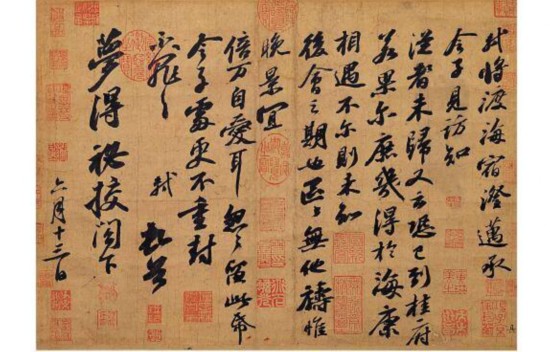 軾將渡海宿澄邁承
令子見訪知
從者未歸又云恐已到桂府
若果爾庶幾得於海康
相遇不爾則未知
後會之期也區々無他禱惟
晚景宜
倍萬自愛耳忽々留此帋
令子處更不重封
不罪々 軾頓首
夢得秘校閣下
六月十三日